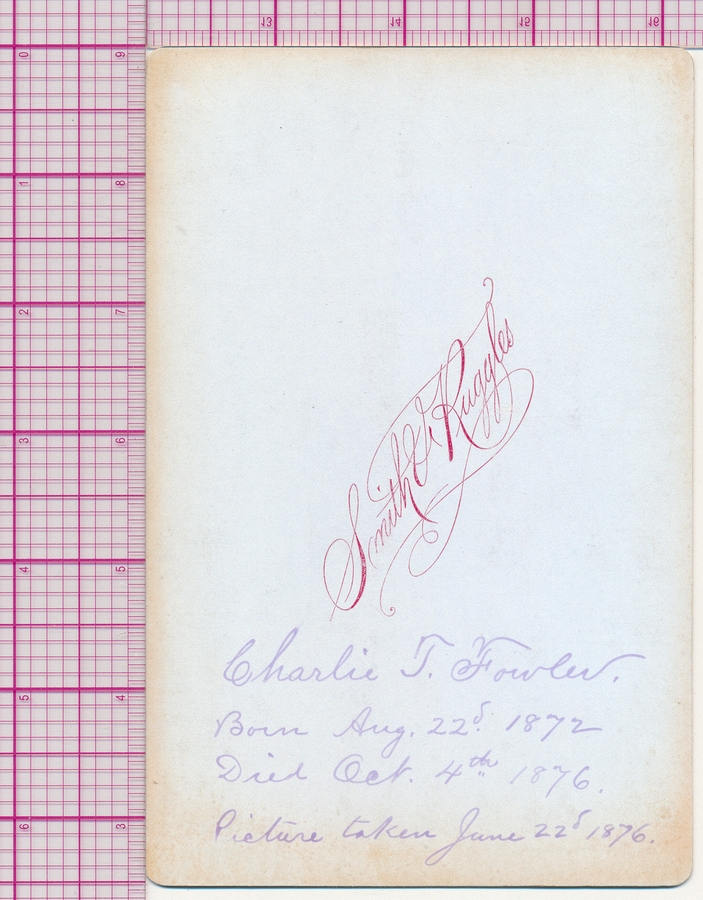 13 14 15 16
0 9
1 8
2 7
3 6
4 5
5 4
6 3
Smith & Ruggles
Charlie T. Fowler.
Born Aug. 22d. 1872
Died Oct. 4th. 1876.
Picture taken June 22d 1876.